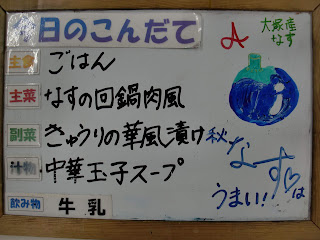 日のこんだて
主食 ごはん
主菜 なすの回鍋肉風
副菜 きゅうりの華風漬け
汁物 中華玉子スープ
飲み物 牛乳
大塚産
なす
秋なす♡は
うまい!